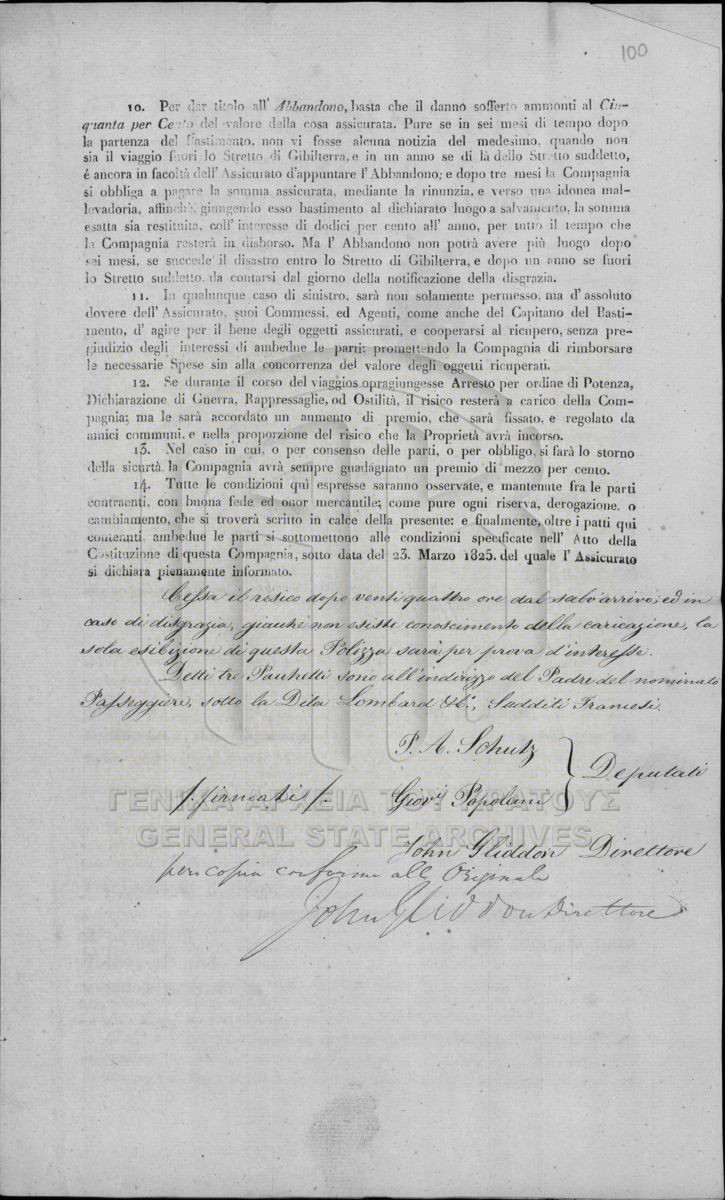 100
10. Per dar titolo all' Abbandono, basta che il danno sofferto ammonti al Cin-
quanta per Cento del valore della cosa assicurata. Pure se in sei mesi di tempo dopo
la partenza del Bastimento, non vi fosse alcuna notizia del medesimo, quando non
sia il viaggio fuori lo Stretto di Gibilterra, e in un anno se di là dello Stretto suddetto,
é ancora in facoltà dell' Assicurato d'appuntare l' Abbandono; e dopo tre mesi la Compagnia
si obbliga a pagare la somma assicurata, mediante la rinunzia, e verso una idonea mal-
levadoria, affinchè, giungendo esso bastimento al dichiarato luogo a salvamento, la somma
esatta sia restituita, coll' interesse di dodici per cento all' anno, per tutto il tempo che
la Compagnia resterà in disborso. Ma l' Abbandono non potrà avere più luogo dopo
sei mesi, se succede il disastro entro lo Stretto di Gibilterra, e dopo un anno se fuori
lo Stretto suddetto, da contarsi dal giorno della notificazione della disgrazia.
11. In qualunque caso di sinistro, sarà non solamente permesso, ma d'assoluto
dovere dell' Assicurato, suoi Commessi, ed Agenti, come anche del Capitano del Basti-
mento, d' agire per il bene degli oggetti assicurati, e cooperarsi al ricupero, senza pre-
giudizio degli interessi di ambedue le parti; promettendo la Compagnia di rimborsare
le necessarie Spese sin alla concorrenza del valore degli oggetti ricuperati.
12. Se durante il corso del viaggios opragiungesse Arresto per ordine di Potenza,
Dichiarazione di Guerra, Rappressaglie, od Ostilità, il risico resterà a carico della Com-
pagnia; ma le sarà accordato un aumento di premio, che sarà fissato, e regolato da
amici communi, e nella proporzione del risico che la Proprietà avrà incorso.
13. Nel caso in cui, o per consenso delle parti, o per obbligo, si farà lo storno
della sicurtà, la Compagnia avrà sempre guadagnato un premio di mezzo per cento.
14. Tutte le condizioni quì espresse saranno osservate, e mantenute fra le parti
contraenti, con buona fede ed onor mercantile; come pure ogni riserva, derogazione, o
cambiamento, che si troverà scritto in calce della presente: e finalmente, oltre i patti quì
contenuti, ambedue le parti si sottomettono alle condizioni specificate nell' Atto della
Costituzione di questa Compagnia, sotto data del 23. Marzo 1825. del quale l' Assicurato
si dichiara pienamente informato.
Cessa il resico dopo venti quattro ore dal salv'arrivo; ed in
caso di disgrazia, giacche non esiste conoscimento della caricazione, la
sola esibizione di questa Polizza sarà per prova d'interesse.
Detti tre Pachetti sono all' indirizzo del Padre del nominato
Passeggiere, sotto la Dita Lombard &c., Sudditi Francesi.
P. A. Schutz
Deputati
/. firmati /. Giov.i Popolani
ΓΕΝΙΚΑ ΑΡΧΕΙΑ ΤΟΥ ΚΡΑΤΟΥΣ
GENERAL STATE ARCHIVES
John Gliddon Direttore
per copia conforme all Originale
John Gliddon Direttore